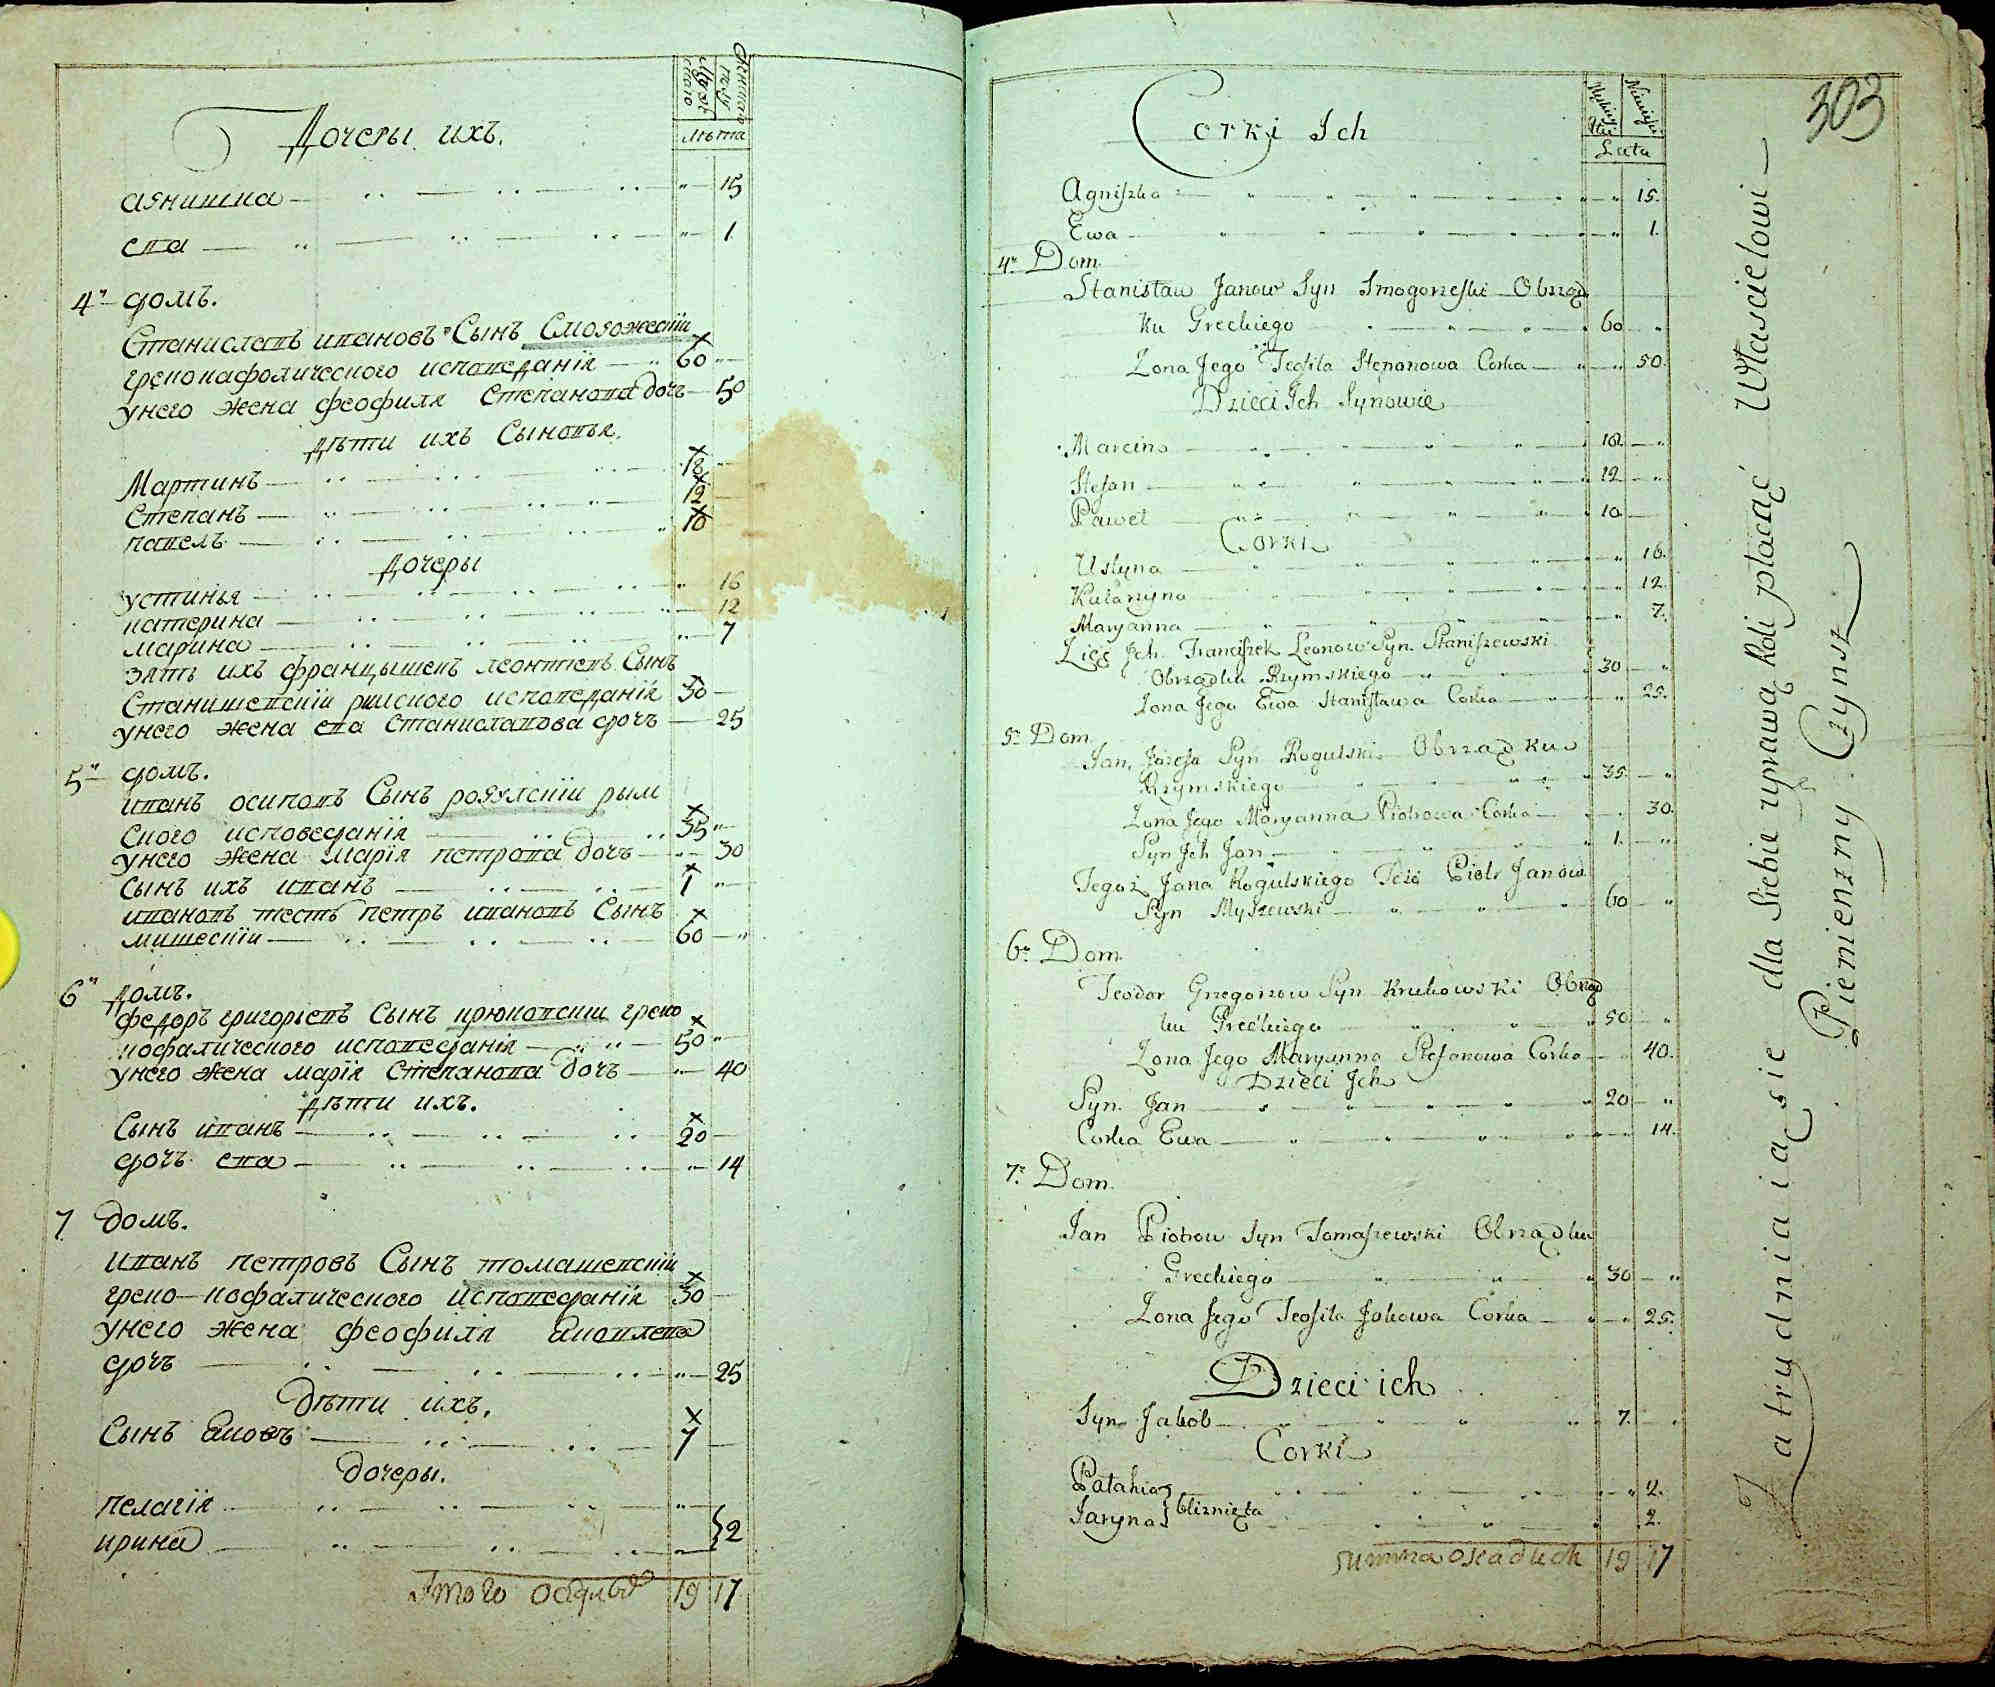 Мужескаго
Женскаго полу
лѣта
Дочеры ихъ.
агнишка — " — 15
ева — " — 1.
4" домъ.
Станиславъ ивановъ Сынъ Смогожескіи
грекокафолического исповеданія — 60 — "
унего жена феофиля степанова дочь — 50
дѣти ихъ Сыновья.
Мартинъ — 18 — "
Степанъ — 12 —
павелъ — 10
дочеры
устинья — " 16
катерина — 12
марина — " — 7
зять ихъ францышекъ леонтевъ Сынъ
Станишевскіи римского исповеданія 30 —
унего жена ева Станиславова дочь — 25
5" домъ.
иванъ осиповъ Сынъ рогулскіи рым
ского исповеданія — 35 "
унего жена марія петрова дочь — " 30
Сынъ ихъ иванъ — 1 "
ивановъ тесть петръ ивановъ Сынъ
мишескіи — 60 — "
6" домъ.
федоръ григорьевъ Сынъ крюковскіи греко
кофалического исповеданія — 50 "
унего жена марія Степанова дочь — " — 40
дѣти ихъ.
Сынъ иванъ — 20 —
дочь ева — " — 14
7 домъ.
иванъ петровъ Сынъ томашевскіи
греко-кофалического исповеданія 30 —
унего жена феофиля яковлева
дочь — " — 25
дѣти ихъ.
Сынъ яковъ — 7 —
дочеры.
пелагія — "
ирина — " } 2
Итого оседлыхъ 19 17
303
Męskiej
Niewieś
Lata
Corki Ich
Agniszka — " 15.
Ewa — " 1.
4" Dom
Stanisław Janow Syn Smogorzeski Obrząd
ku Greckiego — 60 — "
Zona Jego Teofila Stepanowa Corka — " 50.
Dzieci Ich Synowie
Marcin — 18 — "
Stefan — 12 — "
Paweł — 10 —
Corki
Ustyna — " 16.
Katarzyna — " 12.
Maryanna — " 7.
Zięć Ich Franciszek Leonow Syn Staniszewski
Obrządku Rzymskiego — 30 — "
Zona Jego Ewa Stanisława Corka — " 25.
5" Dom
Jan Jozefa Syn Rogulski Obrządku
Rzymskiego — 35 — "
Zona Jego Maryanna Piotrowa Corka — 30.
Syn Ich Jan — 1. — "
Tegoż Jana Rogulskiego Teść Piotr Janow
Syn Myszewski — 60 — "
6" Dom
Teodor Grzegorzow Syn Krukowski Obrząd
ku Greckiego — 50 — "
Zona Jego Maryanna Stefanowa Corka — 40.
Dzieci Ich
Syn Jan — 20 — "
Corka Ewa — " 14.
7" Dom.
Jan Piotrow Syn Tomaszewski Obrządku
Greckiego — 30 — "
Zona Jego Teofila Jakowa Corka — " 25.
Dzieci ich
Syn Jakob — 7. — "
Corki
Patahia — " 2.
Jaryna } bliznięta — 2.
summa osiadłych 19 17
Zatrudniaią się dla Siebie uprawą Roli płacąc Własciełowi —
Pienienzny Czynsz